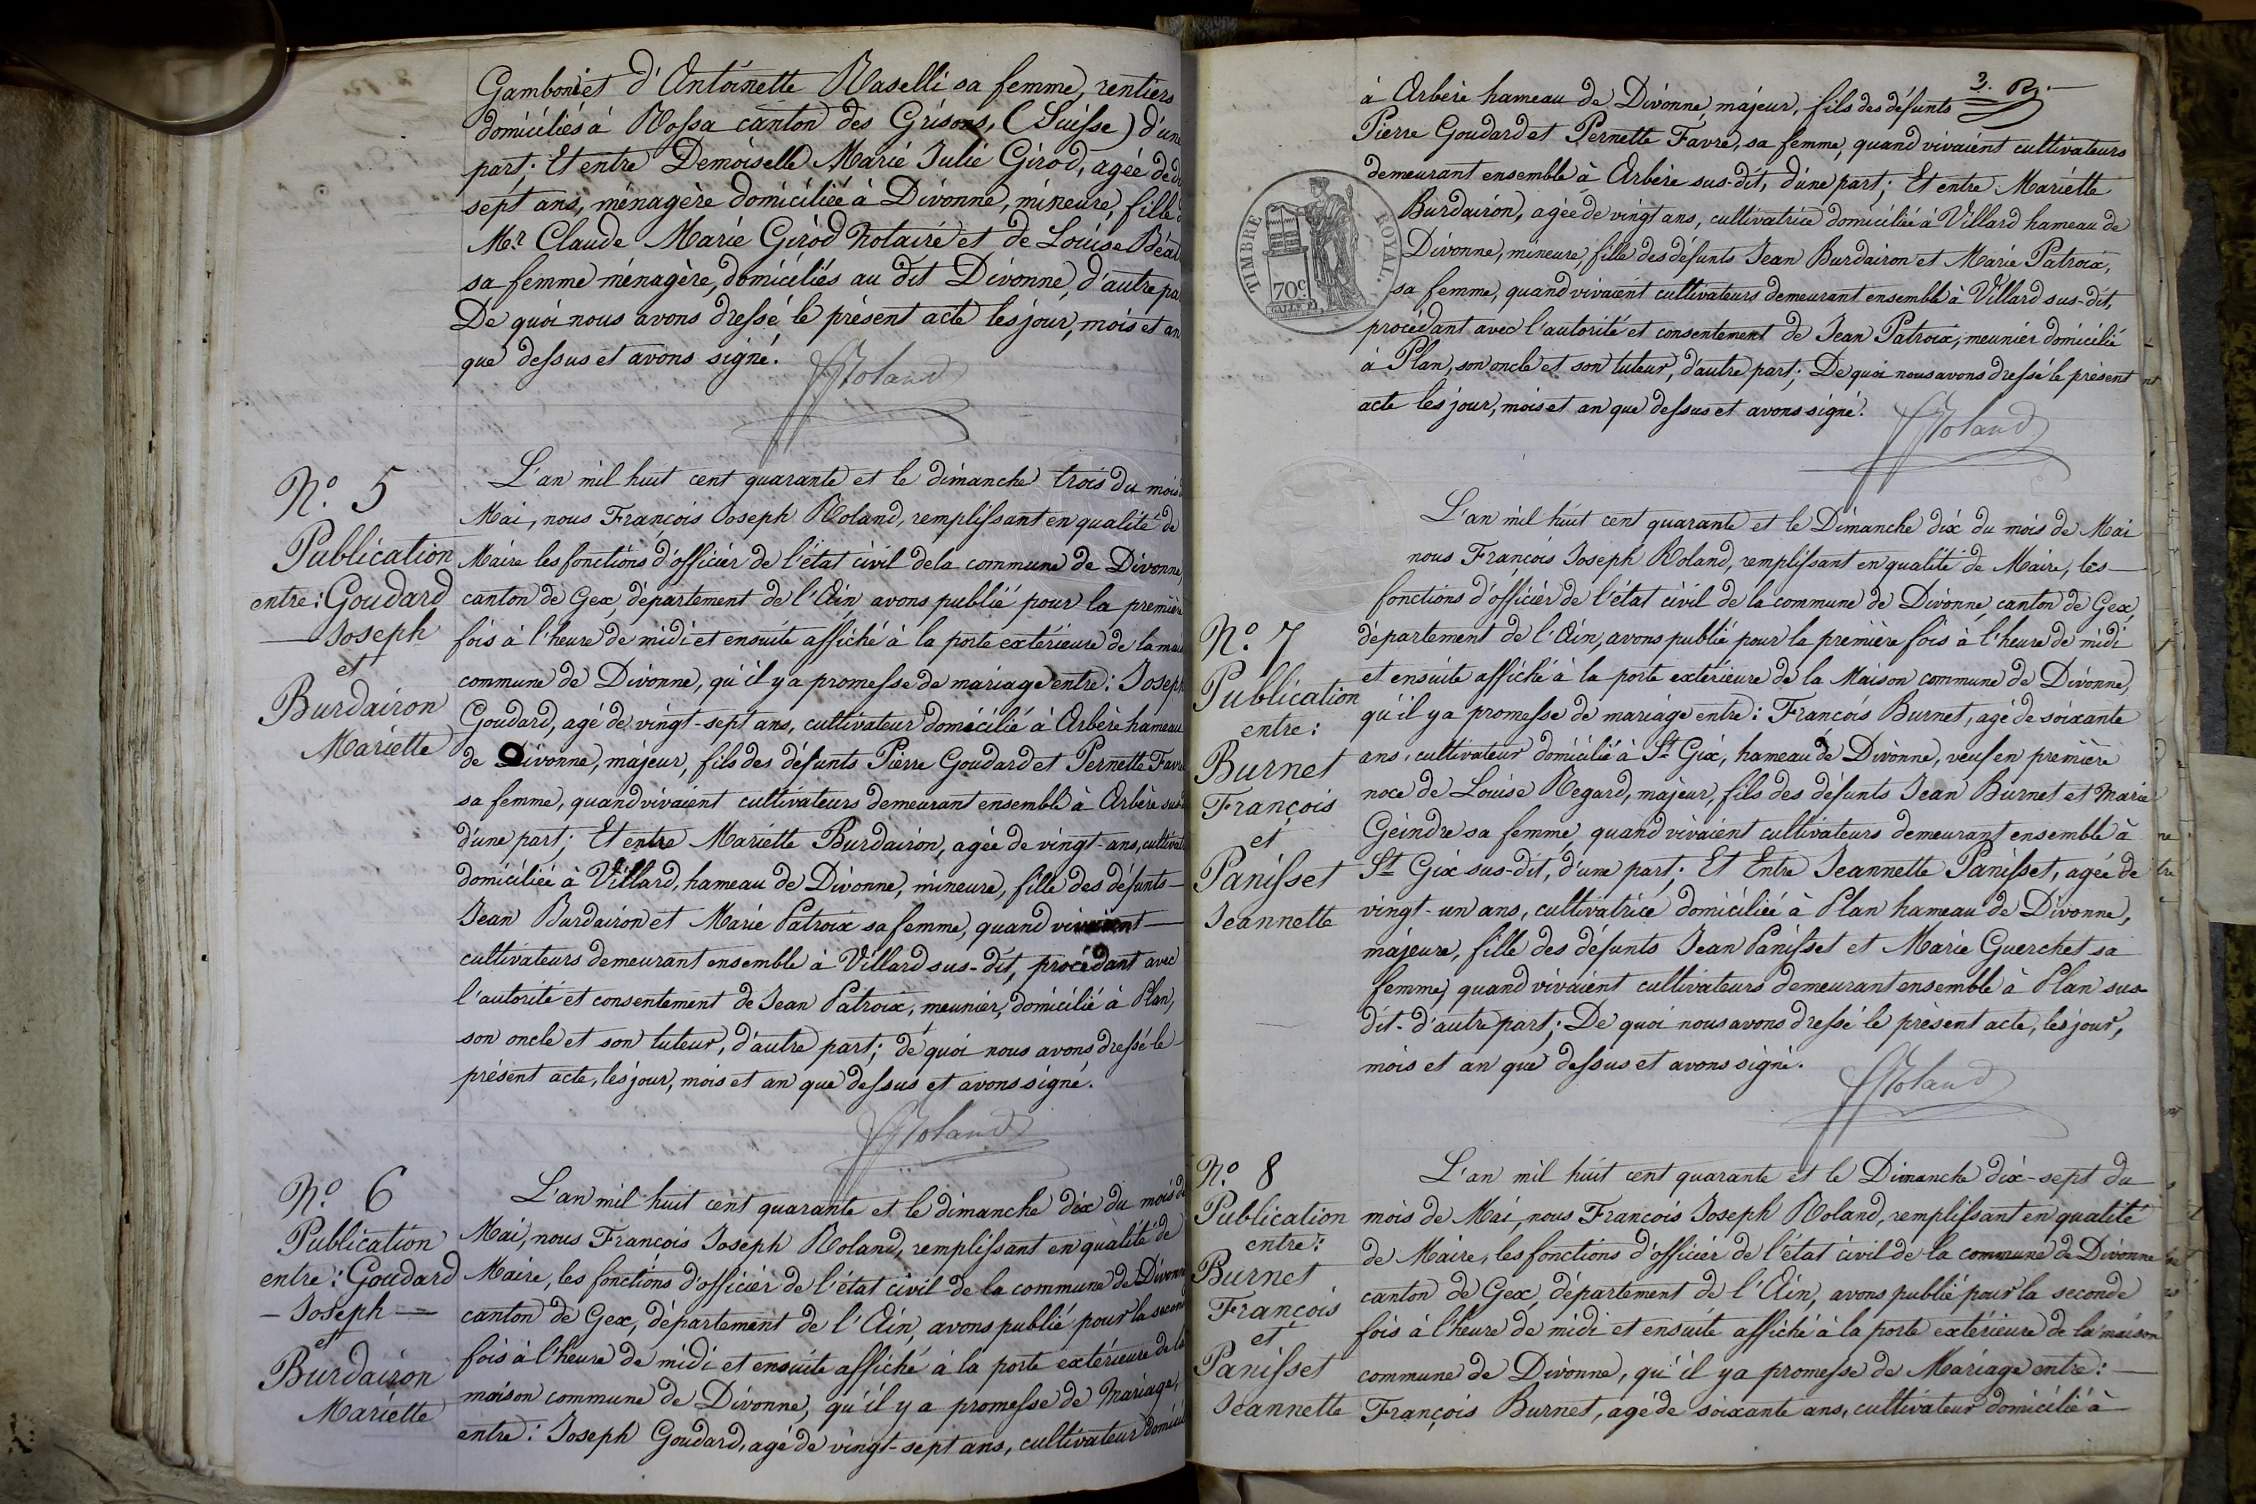 Gamboni et d'Antoinette Raselli sa femme, rentiers
domiciliés à Rossa canton des Grisons, (Suisse) d'une
part; Et entre Demoiselle Marie Julie Girod, agée de
sept ans, ménagère domiciliée à Divonne, mineure, fille
Mr. Claude Marie Girod Notaire et de Louise
sa femme ménagère, domiciliés au dit Divonne, d'autre
De quoi nous avons dressé le présent acte les jour, mois et an
que dessus et avons signé.
Roland
No. 5
Publication
entre: Goudard
Joseph
et
Burdairon
Mariette
L'an mil huit cent quarante et le dimanche trois du mois
Mai, nous François Joseph Roland, remplissant en qualité de
Maire les fonctions d'officier de l'état civil de la commune de Divonne,
canton de Gex département de l'Ain avons publié pour la première
fois à l'heure de midi et ensuite affiché à la porte extérieure de la
commune de Divonne, qu'il y a promesse de mariage entre: Joseph
Goudard, agé de vingt-sept ans, cultivateur domicilié à Arbère hameau
de Divonne, majeur, fils des défunts Pierre Goudard et Pernette Favre
sa femme, quand vivaient cultivateurs demeurant ensemble à Arbère
d'une part; Et entre Mariette Burdairon, agée de vingt-ans,
domiciliée à Villard, hameau de Divonne, mineure, fille des défunts
Jean Burdairon et Marie Patroix sa femme, quand vivaient
cultivateurs demeurant ensemble à Villard sus-dit, procédant avec
l'autorité et consentement de Jean Patroix, meunier, domicilié à Plan,
son oncle et son tuteur, d'autre part; de quoi nous avons dressé le
présent acte, les jour, mois et an que dessus et avons signé.
Roland
No. 6
Publication
entre: Goudard
Joseph
et
Burdairon
Mariette
L'an mil huit cent quarante et le dimanche dix du mois de
Mai, nous François Joseph Roland, remplissant en qualité de
Maire, les fonctions d'officier de l'état civil de la commune de Divonne
canton de Gex, département de l'Ain, avons publié pour la
fois à l'heure de midi et ensuite affiché à la porte extérieure de la
maison commune de Divonne, qu'il y a promesse de Mariage,
entre: Joseph Goudard, agé de vingt-sept ans, cultivateur
3.
à Arbère hameau de Divonne, majeur, fils des défunts
Pierre Goudard et Pernette Favre, sa femme, quand vivaient cultivateurs
demeurant ensemble à Arbère sus-dit, d'une part; Et entre Mariette
Burdairon, agée de vingt ans, cultivatrice domiciliée à Villard hameau de
Divonne, mineure, fille des défunts Jean Burdairon et Marie Patroix,
sa femme, quand vivaient cultivateurs demeurant ensemble à Villard sus-dit,
procédant avec l'autorité et consentement de Jean Patroix, meunier domicilié
à Plan, son oncle et son tuteur, d'autre part; De quoi nous avons dressé le présent
acte les jour, mois et an que dessus et avons signé.
Roland
TIMBRE ROYAL.
70c
No. 7
Publication
entre:
Burnet
François
et
Panisset
Jeannette
L'an mil huit cent quarante et le Dimanche dix du mois de Mai
nous François Joseph Roland, remplissant en qualité de Maire, les
fonctions d'officier de l'état civil de la commune de Divonne canton de Gex,
département de l'Ain, avons publié pour la première fois à l'heure de midi
et ensuite affiché à la porte extérieure de la Maison commune de Divonne,
qu'il y a promesse de mariage entre: François Burnet, agé de soixante
ans, cultivateur domicilié à St Gix, hameau de Divonne, veuf en première
noce de Louise Regard, majeur, fils des défunts Jean Burnet et Marie
Geindre sa femme, quand vivaient cultivateurs demeurant ensemble à
St Gix sus-dit, d'une part; Et Entre Jeannette Panisset, agée de
vingt-un ans, cultivatrice domiciliée à Plan hameau de Divonne,
majeure, fille des défunts Jean Panisset et Marie Guerchet sa
femme, quand vivaient cultivateurs demeurant ensemble à Plan sus
dit- d'autre part; De quoi nous avons dressé le présent acte, les jour,
mois et an que dessus et avons signé.
Roland
No. 8
Publication
entre:
Burnet
François
et
Panisset
Jeannette
L'an mil huit cent quarante et le Dimanche dix-sept du
mois de Mai, nous François Joseph Roland, remplissant en qualité
de Maire, les fonctions d'officier de l'état civil de la commune de Divonne
canton de Gex, département de l'Ain, avons publié pour la seconde
fois à l'heure de midi et ensuite affiché à la porte extérieure de la maison
commune de Divonne, qu'il y a promesse de Mariage entre:
François Burnet, agé de soixante ans, cultivateur domicilié à